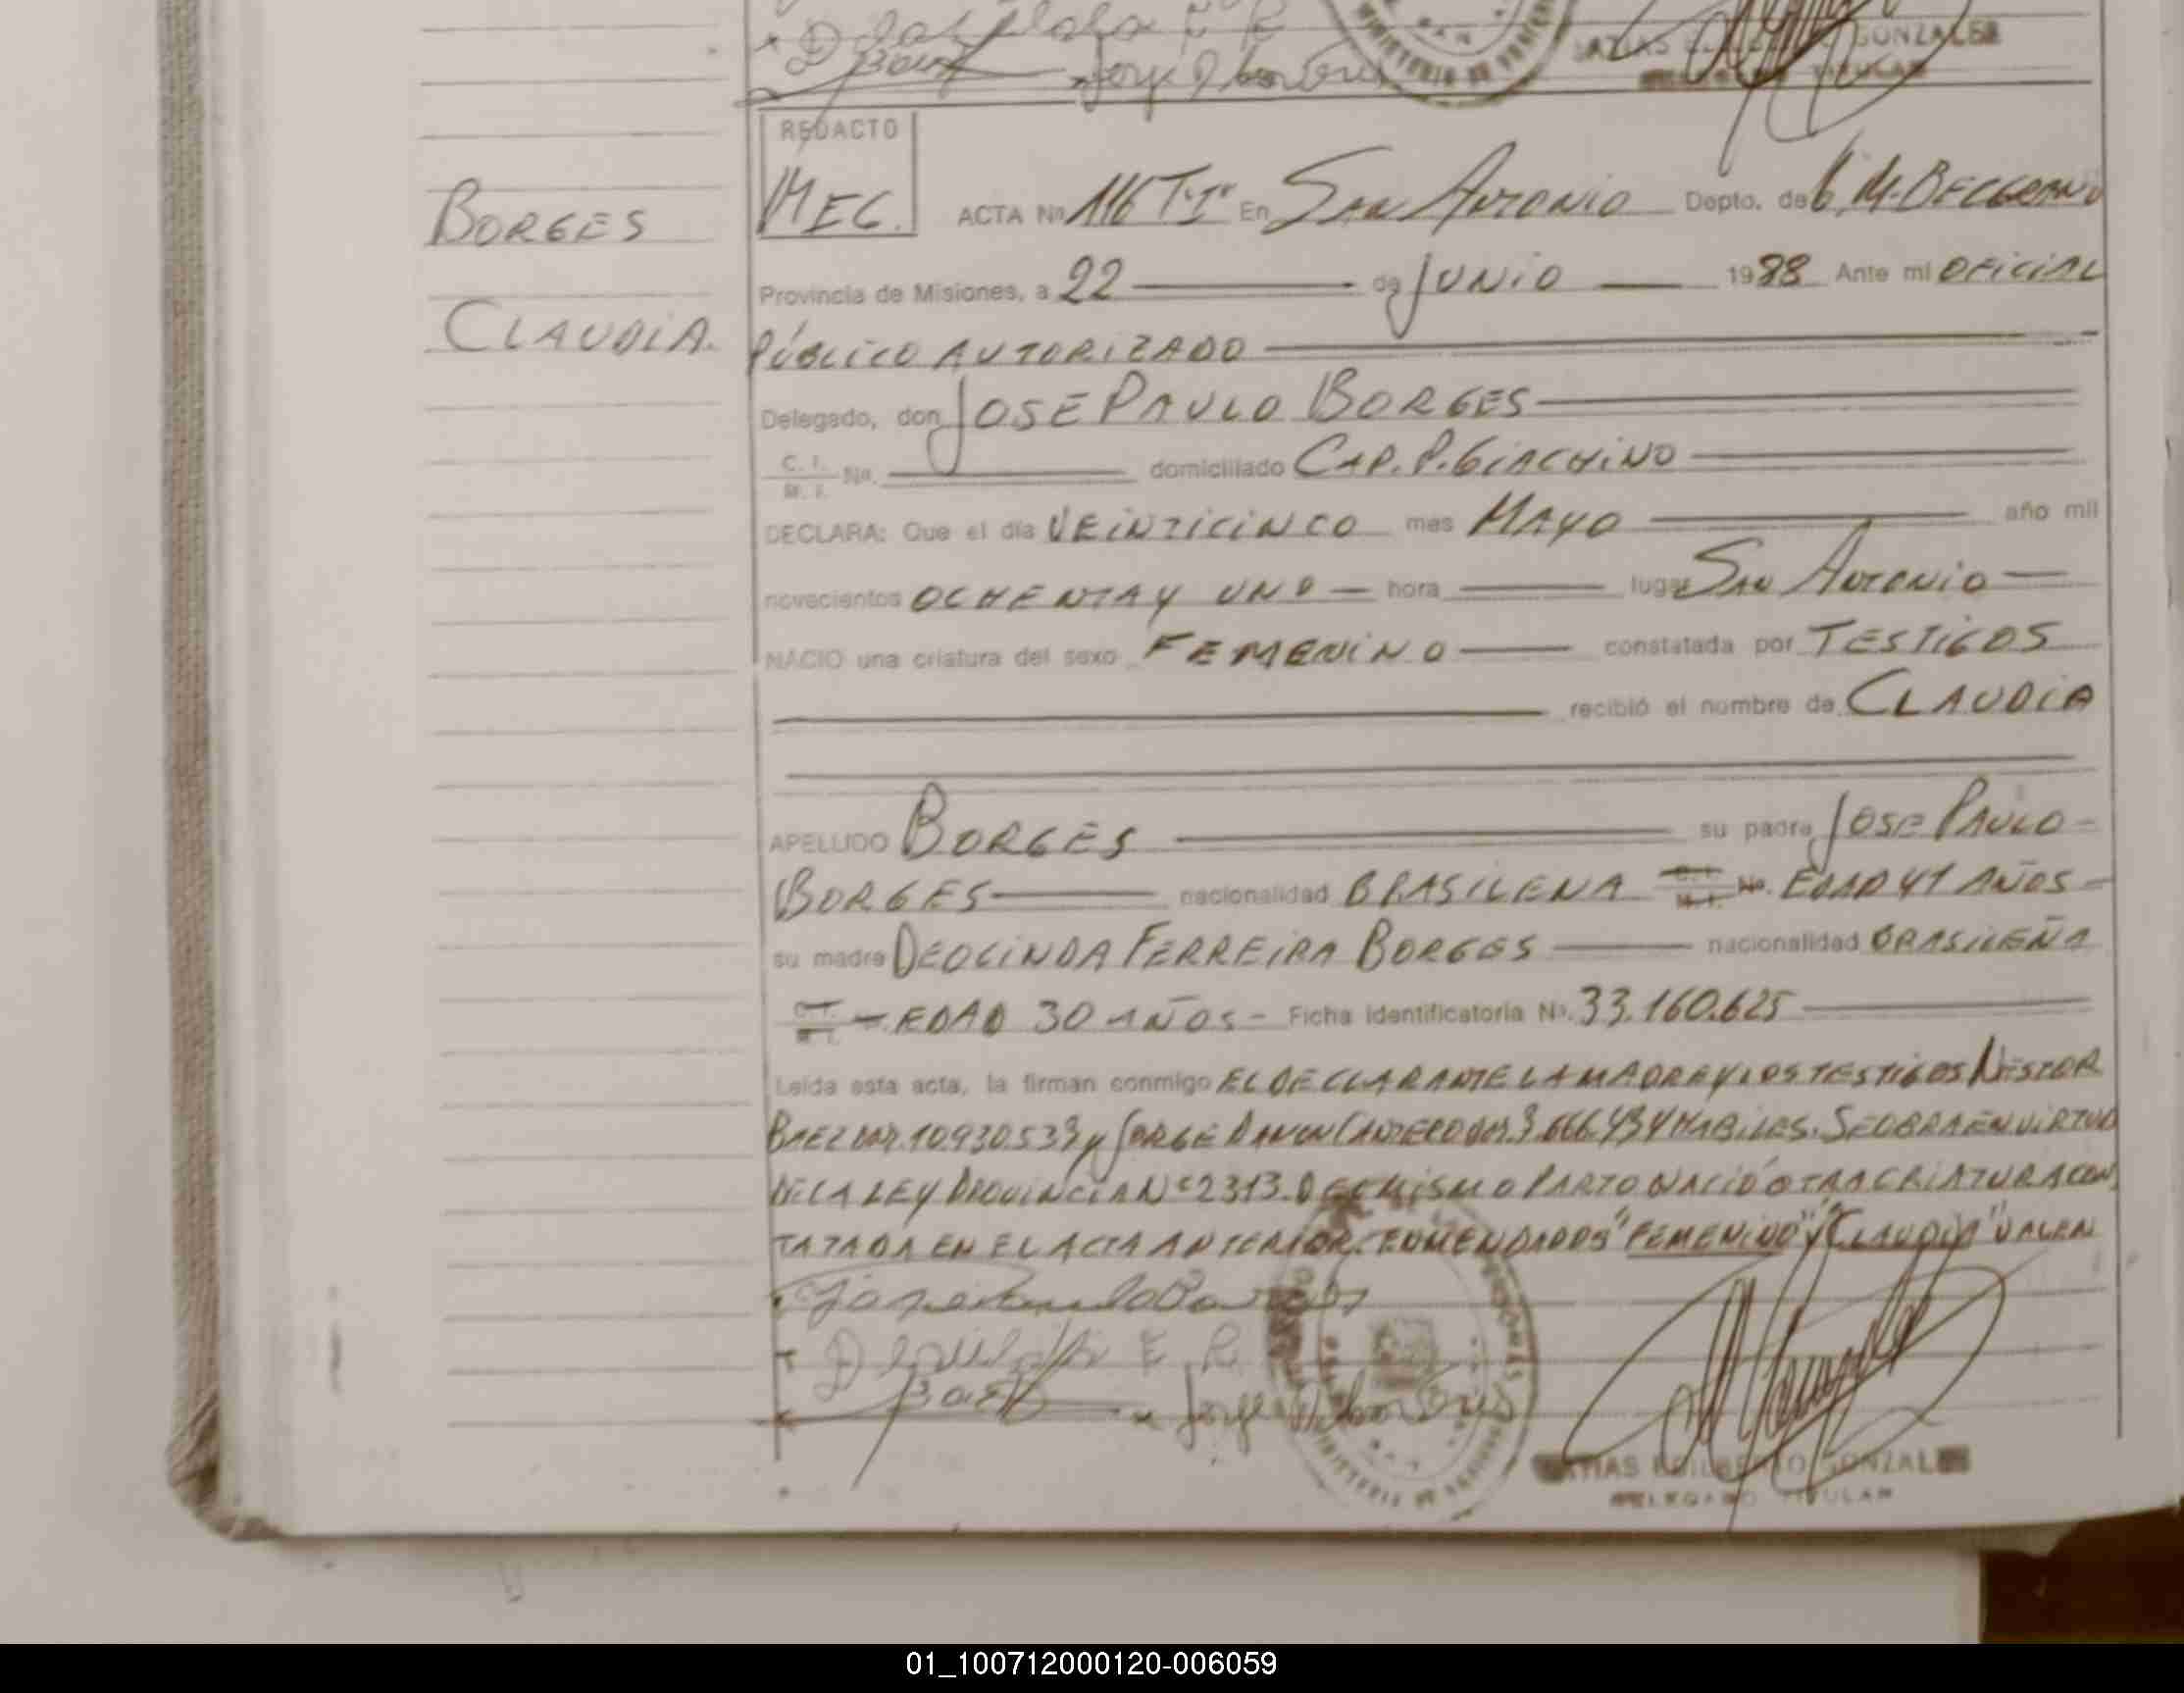 GONZALEZ
TITULAR
REDACTO
MEG.
ACTA Nº 116 T·Iº En SAN ANTONIO Depto. de G. M. BELGRANO
BORGES
Provincia de Misiones, a 22 de JUNIO 1988 Ante mi OFICIAL
CLAUDIA.
PÚBLICO AUTORIZADO
Delegado, don JOSE PAULO BORGES
C. I. M. I. No. domiciliado CAP. P. GIACHINO
DECLARA: Que el día VEINTICINCO mes MAYO año mil
novecientos OCHENTA Y UNO — hora lugar SAN ANTONIO —
NACIO una criatura del sexo FEMENINO constatada por TESTIGOS
recibió el nombre de CLAUDIA
APELLIDO BORGES su padre JOSE PAULO -
BORGES nacionalidad BRASILENA C.I. M.I. No. EDAD 41 AÑOS -
su madre DEOLINDA FERREIRA BORGES nacionalidad BRASILEÑA
EDAD 30 AÑOS - Ficha identificatoria Nº. 33.160.625
Leída esta acta, la firman conmigo EL DECLARANTE LA MADRE Y LOS TESTIGOS NESTOR
BAEZ 10.930.533 y JORGE 3.666.434 HABILES. SE OBRA EN VIRTUD
DE LA LEY PROVINCIAL Nº 2313. DEL MISMO PARTO NACIÓ OTRA CRIATURA CONS
TATADA EN EL ACTA ANTERIOR. ENMENDADOS "FEMENINO" Y "CLAUDIA" VALEN
GONZALEZ
DELEGADO TITULAR
01_100712000120-006059